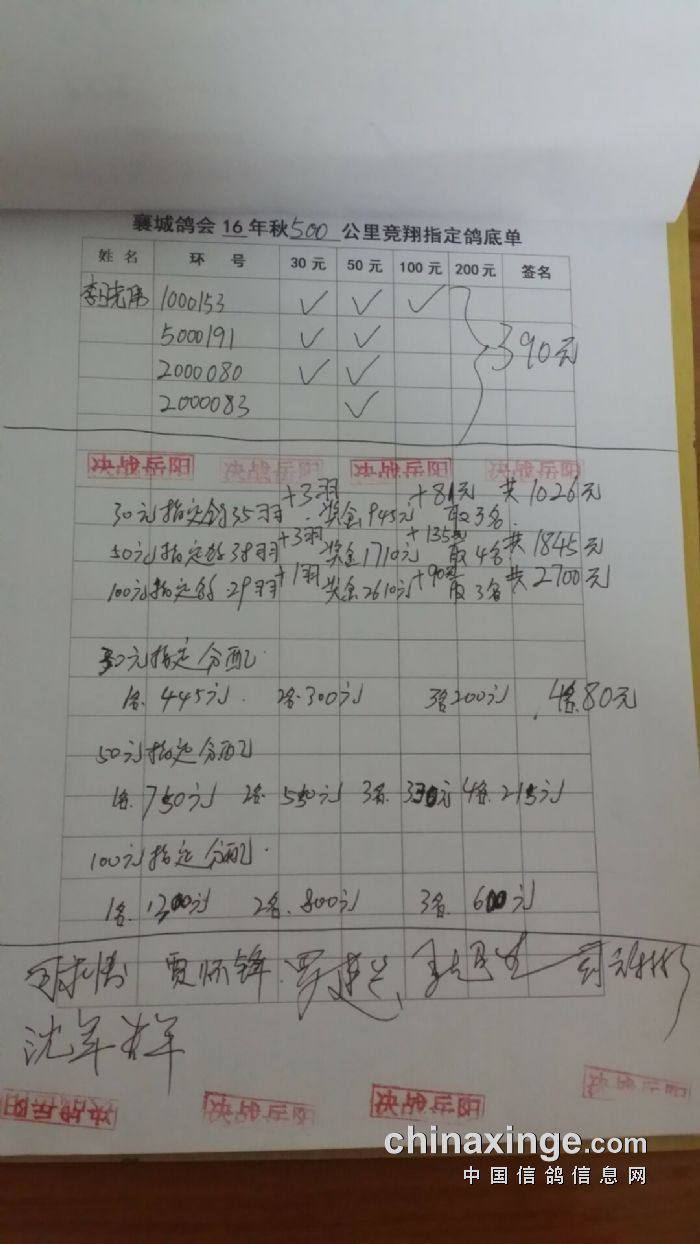 襄城鸽会 16 年秋 500 公里竞翔指定鸽底单
姓名 环号 30元 50元 100元 200元 签名
1000153 ✓ ✓ ✓
5000191 ✓ ✓ 390元
2000080 ✓ ✓
2000083 ✓
决战岳阳 决战岳阳 决战岳阳 决战岳阳
+3羽 +81元 共1026元
30元指定鸽35羽 奖金945元 取3名
+3羽 +135元 共1845元
50元指定鸽38羽 奖金1710元 取4名
+1羽 +90元 共2700元
100元指定鸽29羽 奖金2610元 取3名
30元指定分配
1名.445元. 2名.300元 3名200元 4名.80元
50元指定分配
1名.750元 2名.550元 3名.330元 4名.215元
100元指定分配.
1名.1300元 2名.800元 3名.600元
贾怀锋
沈羊羊
决战岳阳 决战岳阳 决战岳阳 决战岳阳
chinaxinge.com
中国信鸽信息网